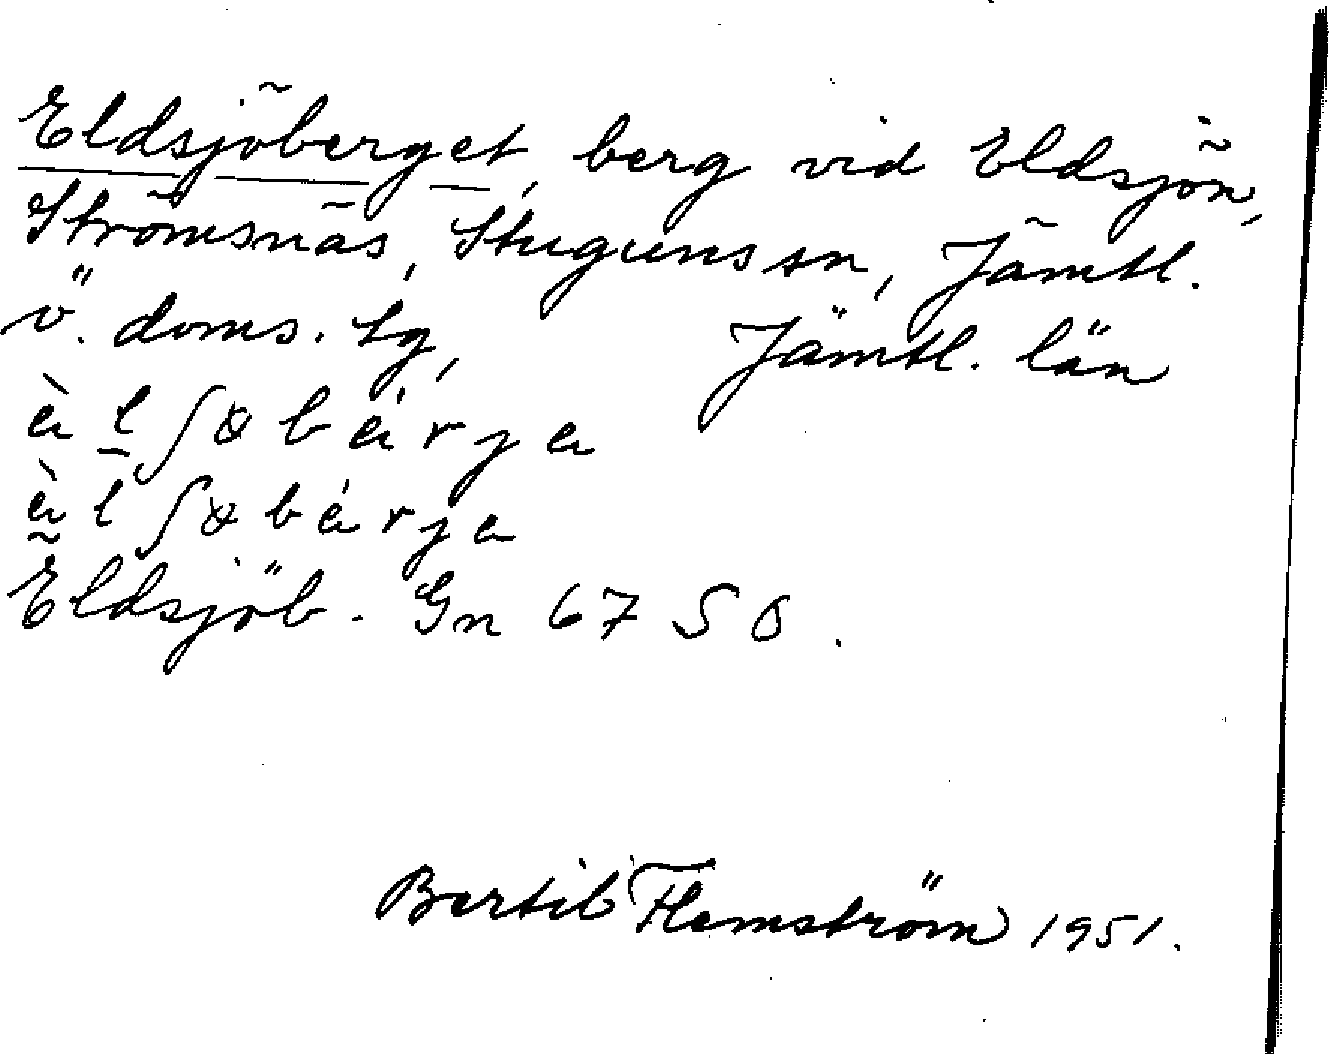 Eldsjöberget, berg vid Eldsjön,
Strömsnäs, Stuguns sn, Jämtl.
v. doms. sg, Jämtl. län
ὰ l ʃ ɞ b ä́ r j a
ὰ l ʃ ɞ b ä́ r j a
Eldsjöb. Gn 67 SO.
Bertil Flemström 1951.